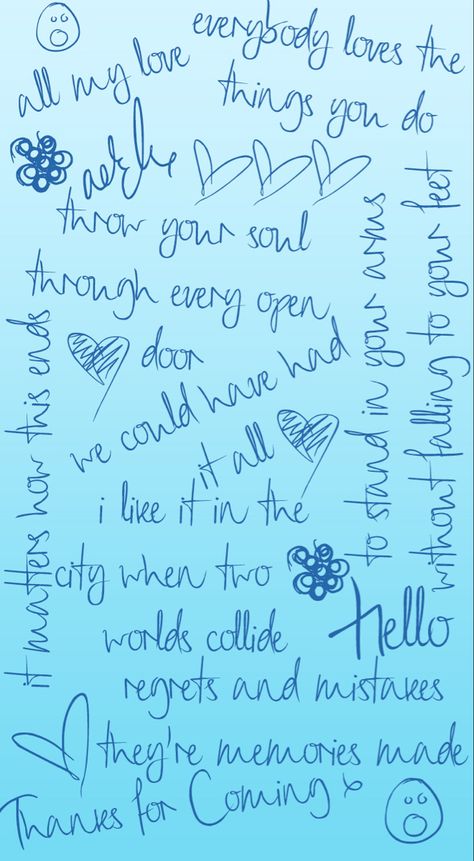 everybody loves the
things you do
all my love
throw your soul
through every open
door
we could have had
it all
i like it in the
city when two
worlds collide
to stand in your arms
without falling to your feet
it matters how this ends
Hello
regrets and mistakes
they're memories made
Thanks for Coming x